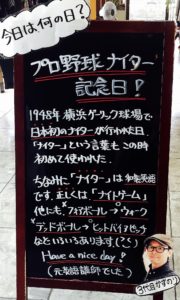 今日は何の日?
プロ野球ナイター
記念日!
1948年横浜ゲーリック球場で
日本初のナイターが行われた日。
「ナイター」という言葉もこの時
初めて使われた。
ちなみに「ナイター」は和製英語
です。正しくは「ナイトゲーム」
他にも、フォアボール→ウォーク
デッドボール→ヒットバイピッチ
などいろいろあります。(^^)
Have a nice day!
(元英語講師でした)
3代目かずの